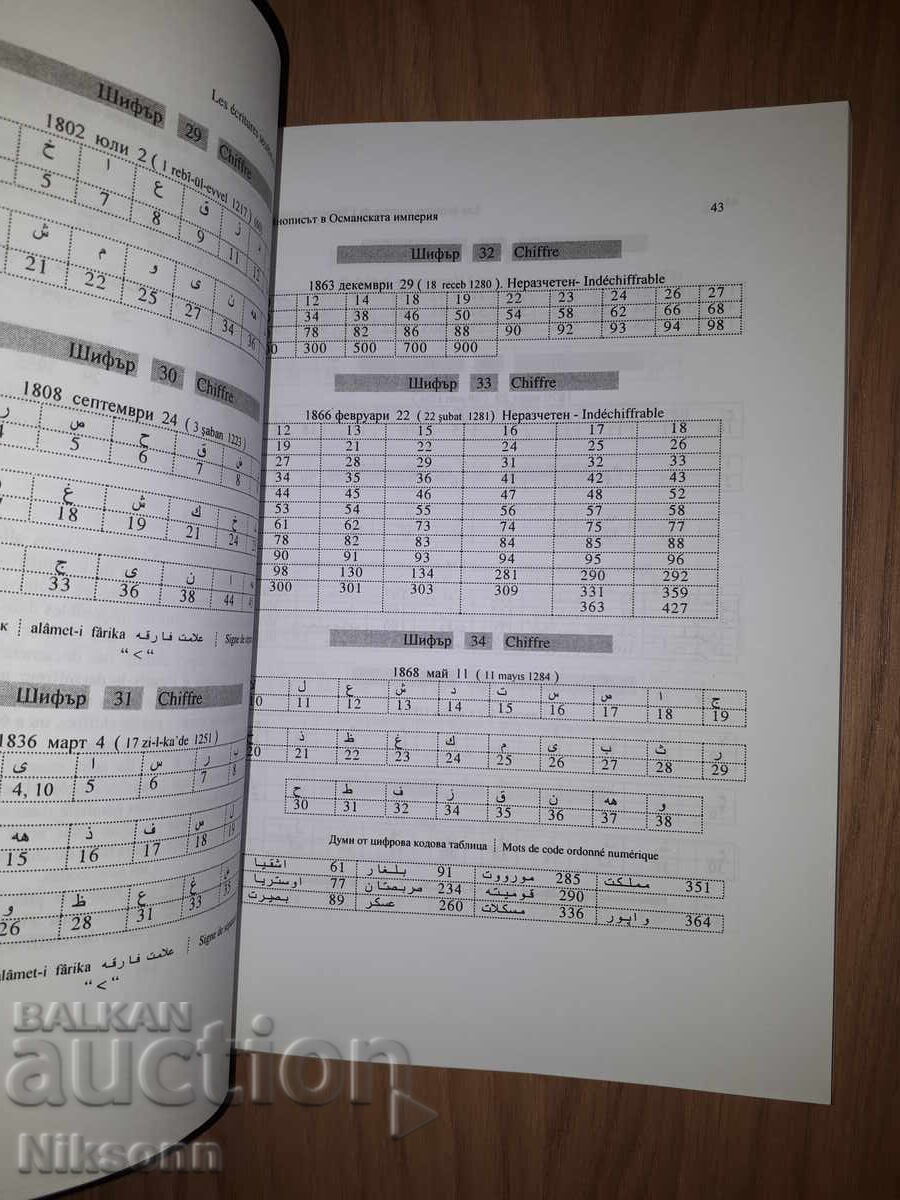 Les écritures
Шифър 29 Chiffre
1802 юли 2 ( 1 rebî-ül-evvel 1217)
خ ا ع ق ز
5 7 8 9 11
ش م و ى ن هه
21 22 25 27 34 36
Шифър 30 Chiffre
1808 септември 24 ( 3 şaban 1223)
ر ص ح ق
4 5 6 7 8
غ ش ك خ
18 19 21 24
ج ى ن ا
33 36 38 44
к alâmet-i fârika علامت فارقه Signe de
“ < “
Шифър 31 Chiffre
1836 март 4 ( 17 zi-l-ka'de 1251)
ى ا س ر ب
4, 10 5 6 7 8
هه ذ ف س ل
15 16 17 18
و ظ ع غ
26 28 31 33
alâmet-i fârika علامت فارقه Signe de
“ < “
нописът в Османската империя 43
Шифър 32 Chiffre
1863 декември 29 ( 18 receb 1280 ). Неразчетен- Indéchiffrable
12 14 18 19 22 23 24 26 27
34 38 46 50 54 58 62 66 68
78 82 86 88 90 92 93 94 98
300 500 700 900
Шифър 33 Chiffre
1866 февруари 22 ( 22 şubat 1281) Неразчетен - Indéchiffrable
12 13 15 16 17 18
19 21 22 24 25 26
27 28 29 31 32 33
34 35 36 41 42 43
44 45 46 47 48 52
53 54 55 56 57 58
61 62 73 74 75 77
78 82 83 84 85 88
90 91 93 94 95 96
98 130 134 281 290 292
300 301 303 309 331 359
363 427
Шифър 34 Chiffre
1868 май 11 ( 11 mayıs 1284 )
ل ع ش د ت س ص ا ج
10 11 12 13 14 15 16 17 18 19
ذ ظ غ ك م ى ب ث ر
20 21 22 23 24 25 26 27 28 29
ح ط ف ز ق ن هه و
30 31 32 34 35 36 37 38
Думи от цифрова кодова таблица Mots de code ordonné numérique
اشقيا 61 بلغار 91 مورووت 285 مملكت 351
اوستريا 77 صربستان 234 قوميته 290
بصيرت 89 عسكر 260 مسكلات 336 واپور 364
BALKAN
auction
Niksonn